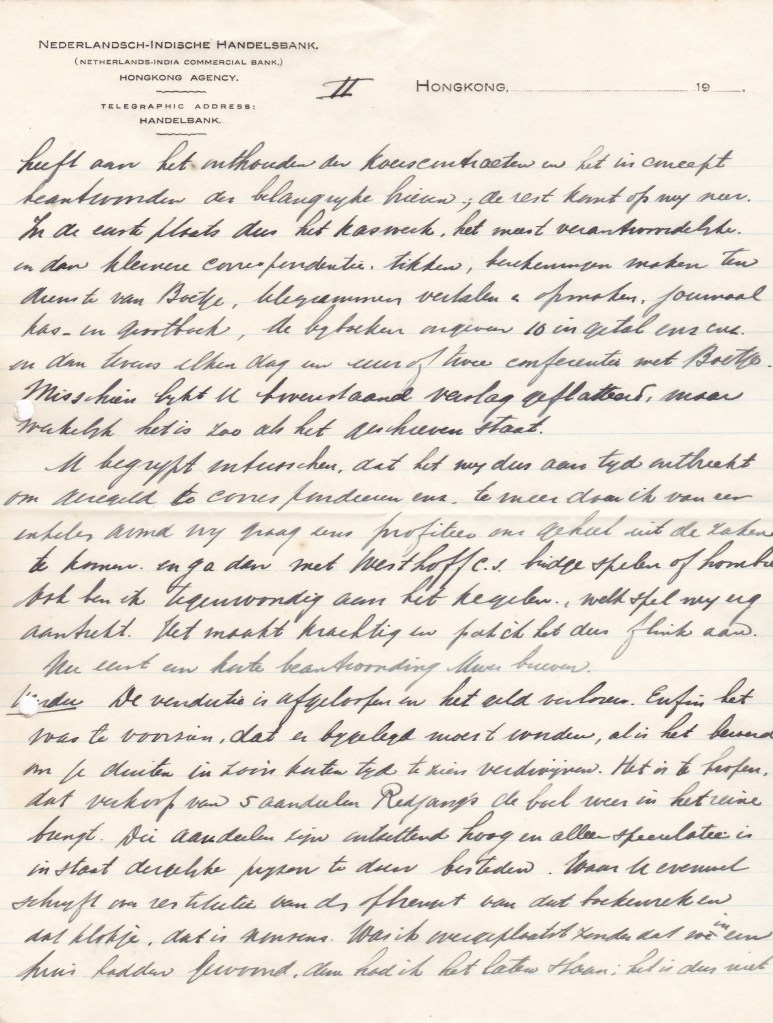 NEDERLANDSCH-INDISCHE HANDELSBANK.
(NETHERLANDS-INDIA COMMERCIAL BANK.)
HONGKONG AGENCY.
TELEGRAPHIC ADDRESS:
HANDELBANK.
II
HONGKONG, 19 .
heeft aan het onthouden der koerscontracten en het in concept
beantwoorden der belangrijke brieven; de rest komt op mij neer.
In de eerste plaats dus het kaswerk, het meest verantwoordelijke.
en dan kleinere correspondentie. tikken, berekeningen maken ten
dienste van Boetje, telegrammen vertalen & opmaken, journaal
kas- en grootboek, de bijboeken ongeveer 10 in getal enz enz.
en dan tevens elken dag een uur of twee conferentie met Boetje.
Misschien lijkt U bovenstaand verslag geflatteerd, maar
werkelijk het is zoo als het geschreven staat.
U begrijpt intusschen, dat het mij dus aan tijd ontbreekt
om geregeld te correspondeeren enz. te meer daar ik van een
enkelen avond vrij graag eens profiteer om geheel uit de zaken
te komen. en ga dan met Westhoff c.s. bridge spelen of hombre
Ook ben ik tegenwoordig aan het kegelen., welk spel mij erg
aantrekt. Het maakt krachtig en pak ik het dus flink aan.
Nu eerst een korte beantwoording Uwer brieven.
De vendutie is afgeloopen en het geld verloren. Enfin het
was te voorzien, dat er bijgelegd moest worden, al is het
om je duiten in zoo'n korten tijd te zien verdwijnen. Het is te hopen,
dat verkoop van 5 aandeelen Redjang's de boel weer in het reine
brengt. Die aandeelen zijn ontzettend hoog en alleen speculatie is
in staat dergelijke prijzen te doen besteden. Waar U evenwel
schrijft om restitutie van de opbrengst van dat boekenrek en
dat klokje, dat is nonsens. Was ik overgeplaatst zonder dat we in een
huis hadden gewoond, dan had ik het laten staan; het is dus niet